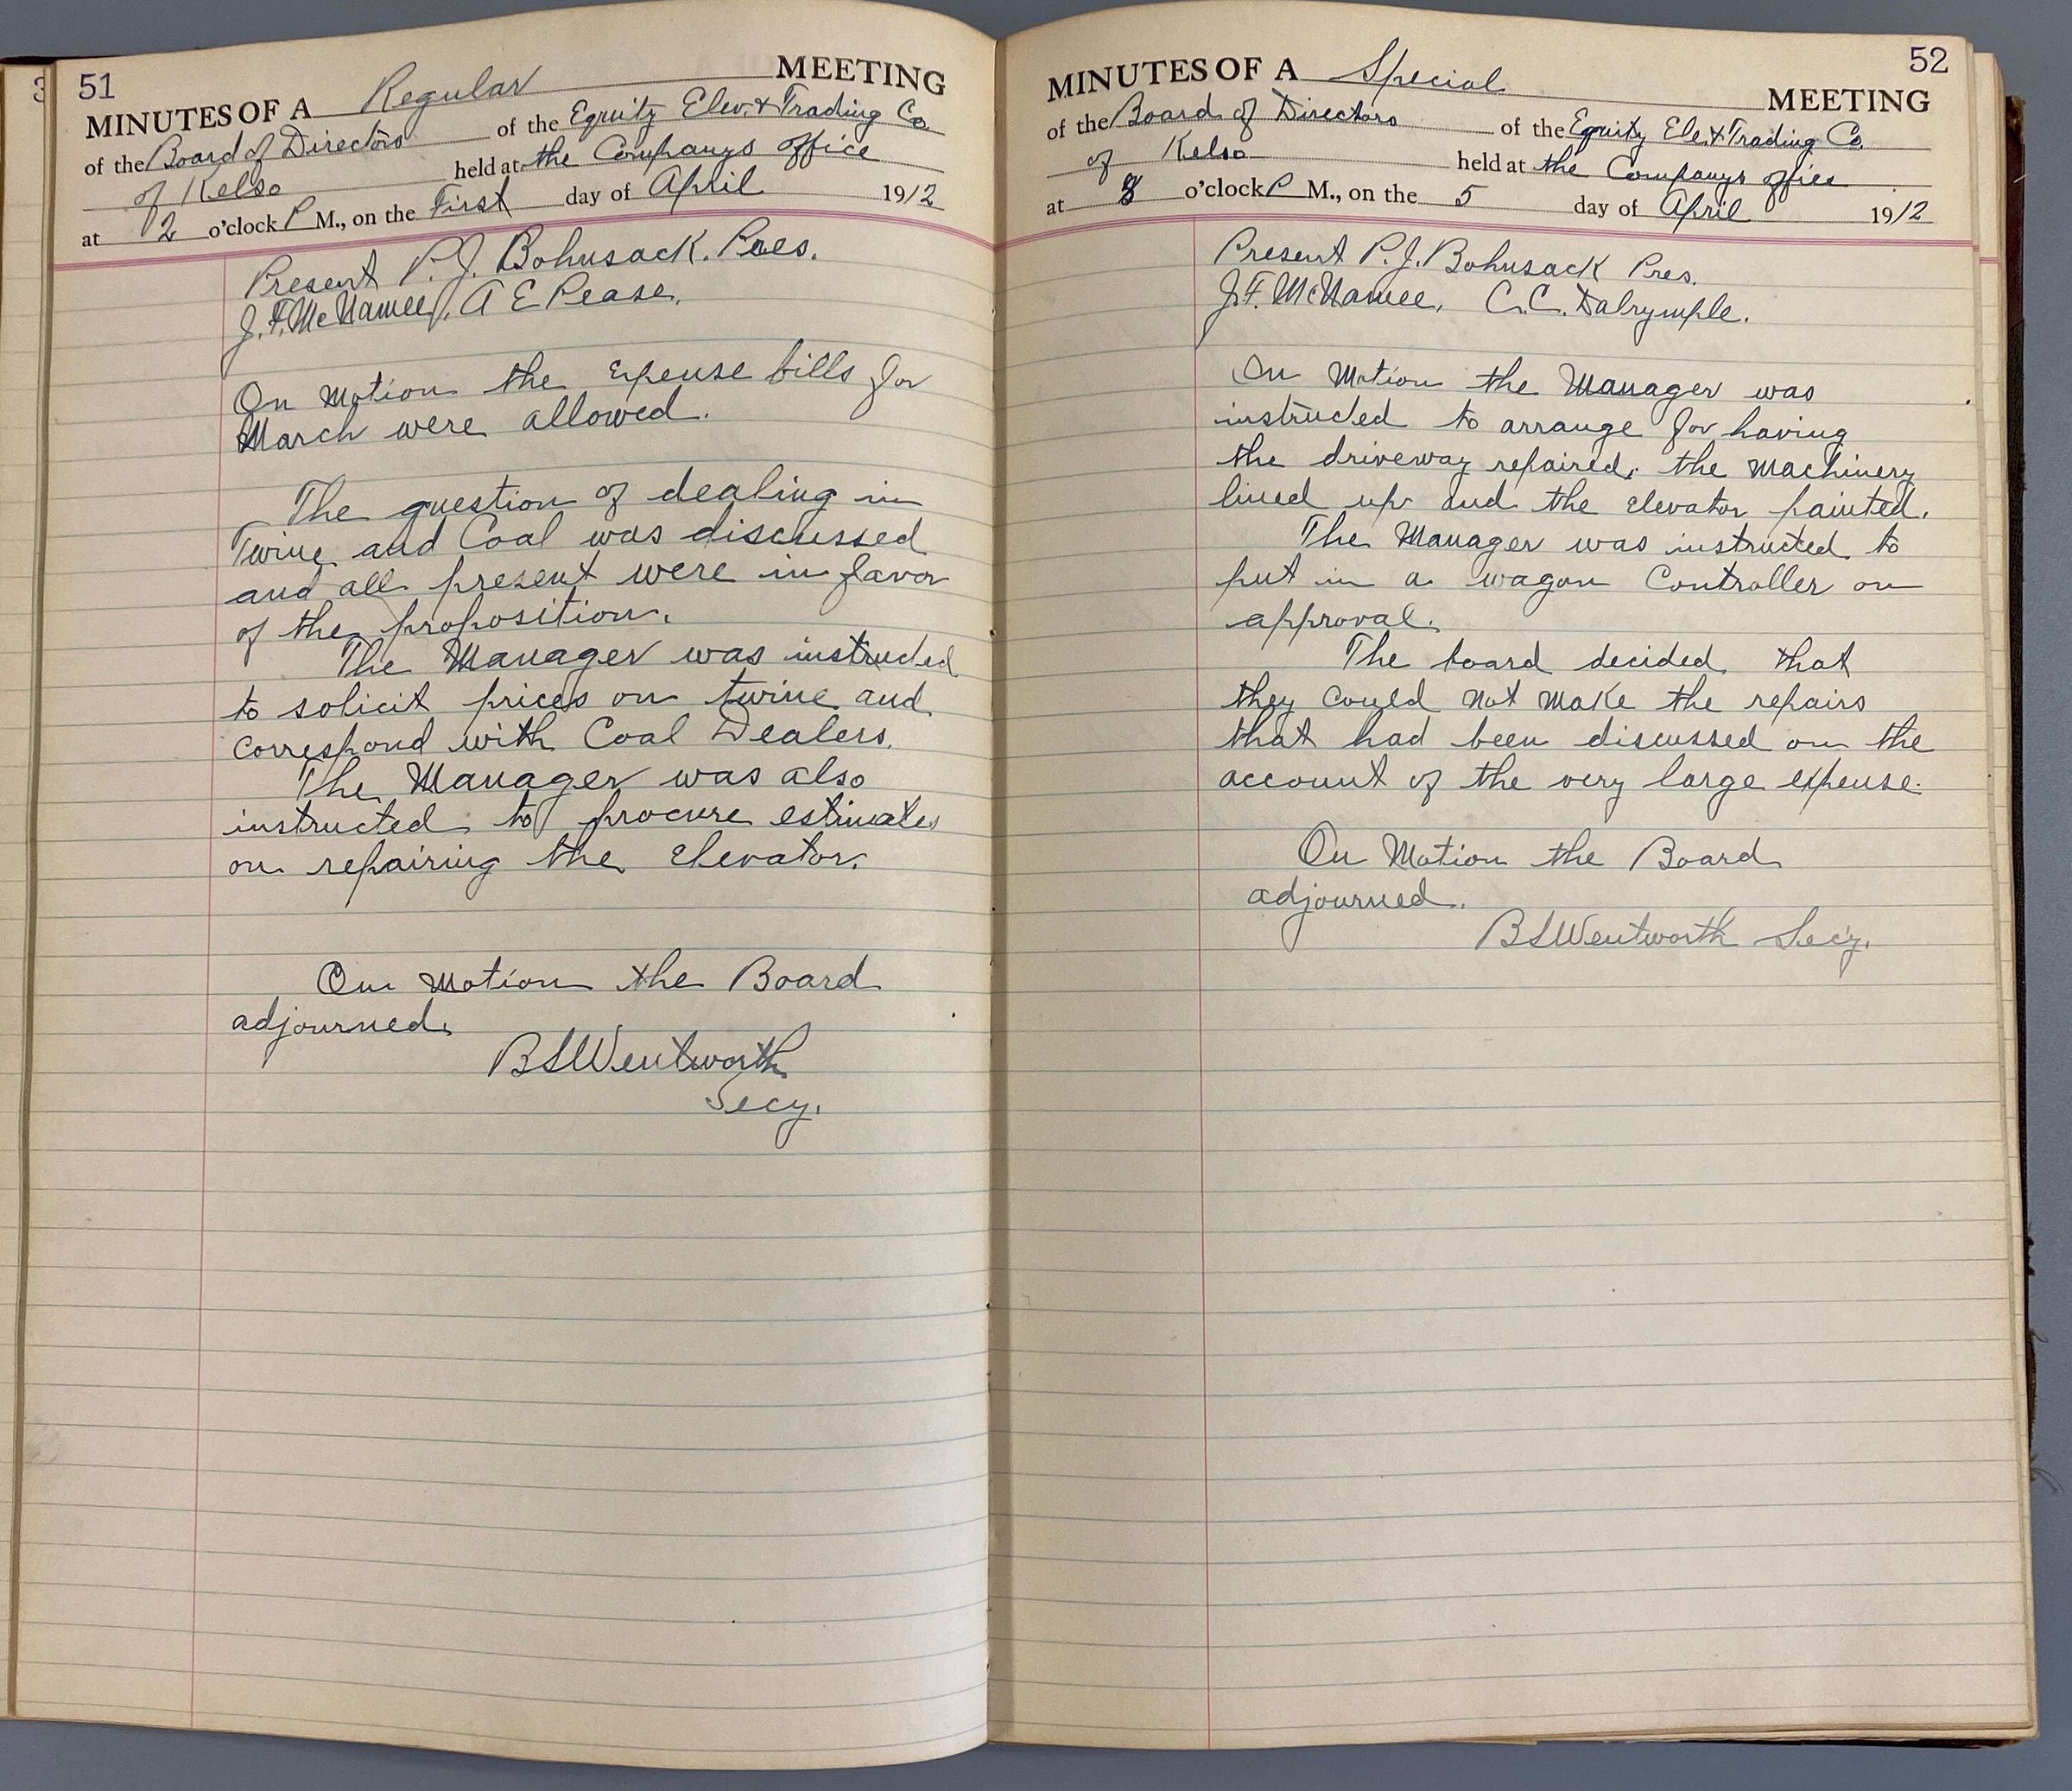 51
MINUTES OF A Regular MEETING
of the Board of Directors of the Equity Elev. & Trading Co.
of Kelso held at the Companys office
at 2 o'clock P M., on the First day of April 1912
Present P. J. Bohnsack. Pres.
J. F. McNamee, A E Pease.
On Motion the Expense bills for
March were allowed.
The question of dealing in
Twine and Coal was discussed
and all present were in favor
of the proposition.
The Manager was instructed
to solicit prices on twine and
correspond with Coal Dealers.
The Manager was also
instructed to procure estimates
on repairing the Elevator.
On Motion the Board
adjourned.
B S Wentworth
Secy.
52
MINUTES OF A Special MEETING
of the Board of Directors of the Equity Ele. & Trading Co.
of Kelso held at the Companys office
at 8 o'clock P M., on the 5 day of April 1912
Present P. J. Bohnsack Pres.
J. F. McNamee, C. C. Dalrymple.
On Motion the Manager was
instructed to arrange for having
the driveway repaired, the Machinery
lined up and the Elevator painted.
The Manager was instructed to
put in a wagon Controller on
approval.
The board decided that
they could not make the repairs
that had been discussed on the
account of the very large expense.
On Motion the Board
adjourned.
B S Wentworth Secy.